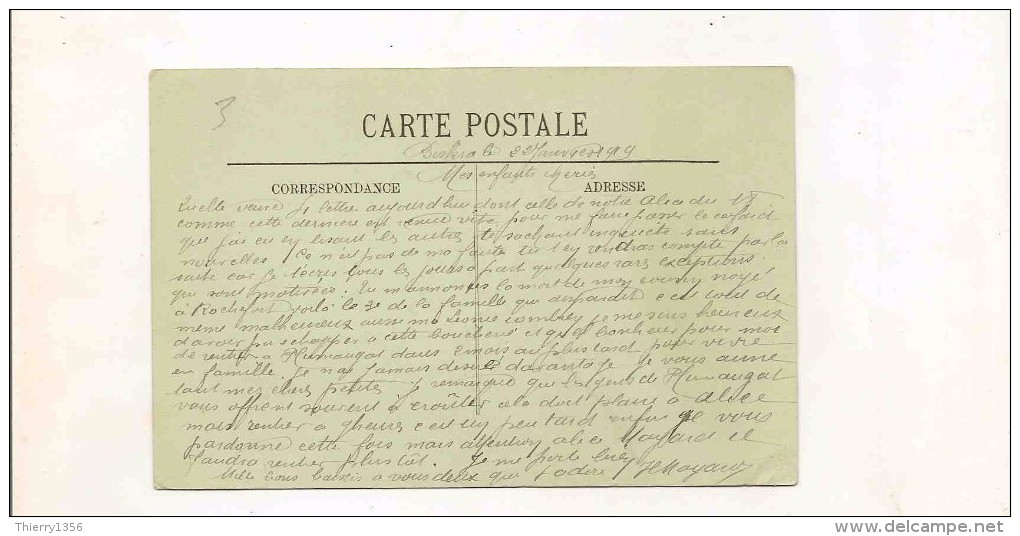 3
CARTE POSTALE
Biskra le 22 Janvier 1919
Mes enfants chéris
CORRESPONDANCE
ADRESSE
Quelle veine 5 lettre aujourd'hui dont celle de notre Alice du 18
comme cette dernière est venue vite pour me faire passer le cafard
que j'ai eu en lisant les autres te sachant inquiète sans
nouvelles ce n'est pas de ma faute tu t'en rendras compte par la
suite car je t'écris tous les jours à part quelques rares exceptions
qui sont motivées. Tu m'annonces la mort de mon cousin noyé
à Rochefort voilà le 3e de la famille qui disparait c'est tout de
même malheureux aussi ma Léonie combien je me sens heureux
d'avoir pu échapper à cette boucherie et quel bonheur pour moi
de rentrer à Plumaugat dans 2 mois au plus tard pour vivre
en famille. Je n'ai jamais désiré davantage. Je vous aime
tant mes chères petites je remarque que les gens de Plumaugat
vous offrent souvent à croûter cela doit plaire à Alice
mais rentrer à 9 heures c'est un peu tard enfin je vous
pardonne cette fois mais attention Alice Mayard il
faudra rentrer plus tôt. Je me porte bien
Mille bons baisers à vous deux que j'adore
Mayard
Thierry1356
www.delcampe.net